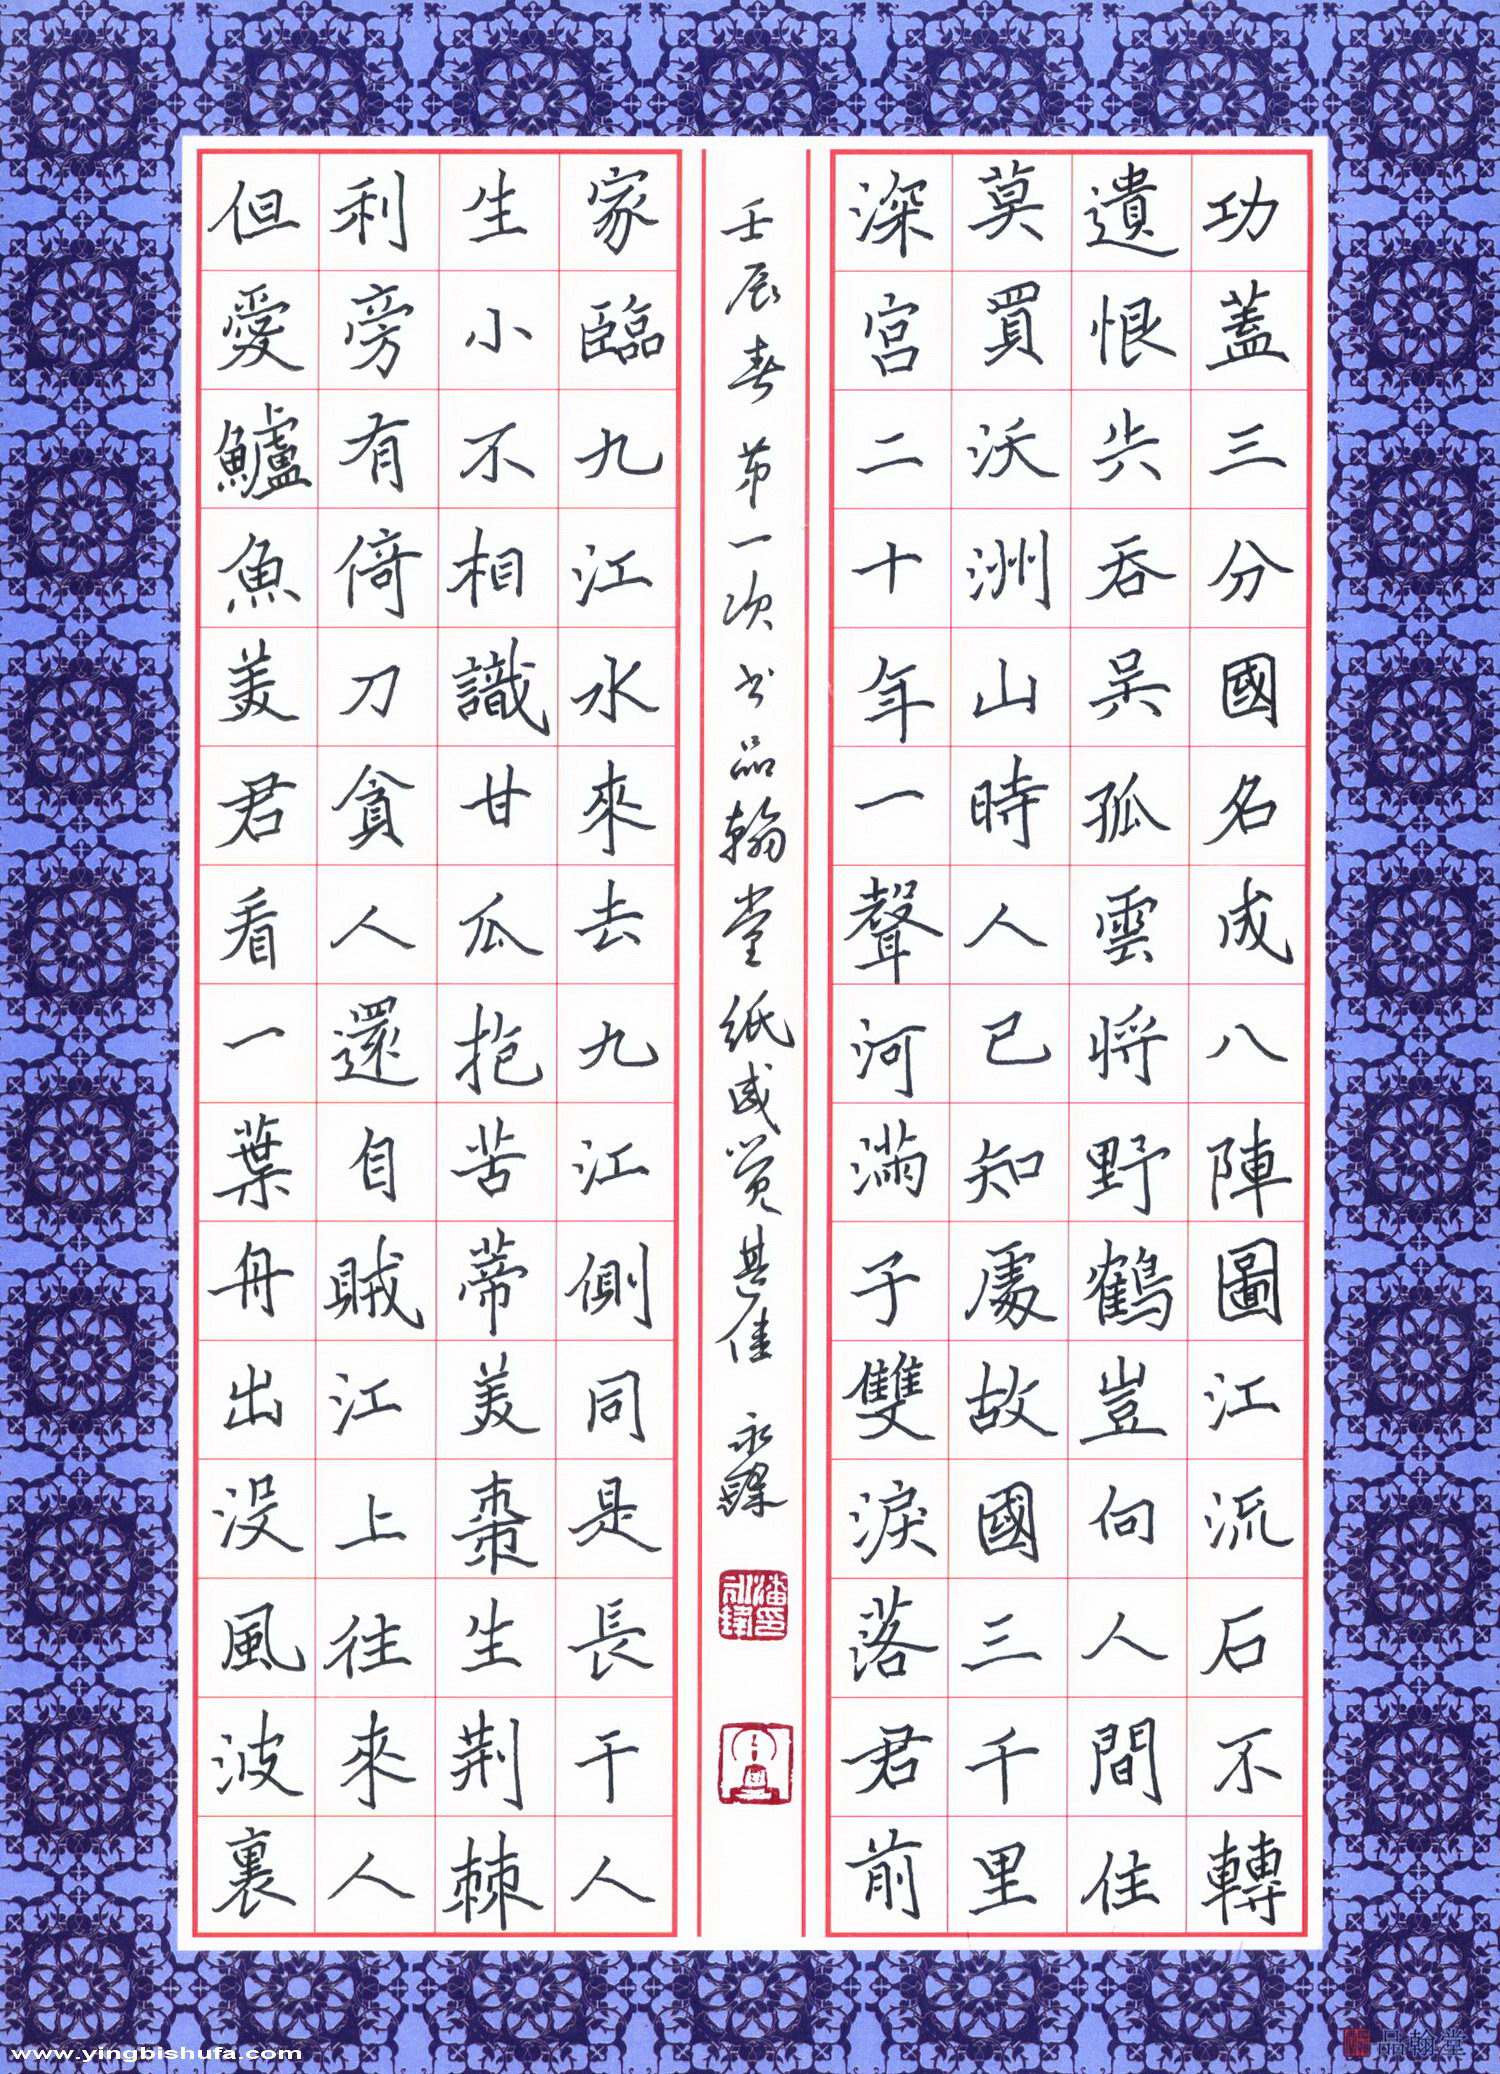 功蓋三分國名成八陣圖江流石不轉
遺恨失吞吳孤雲將野鶴豈向人間住
莫買沃洲山時人已知處故國三千里
深宮二十年一聲河滿子雙淚落君前
壬辰春第一次书品翰堂纸感觉甚佳 永鐸
家臨九江水來去九江側同是長干人
生小不相識甘瓜抱苦蒂美棗生荆棘
利旁有倚刀貪人還自賊江上往來人
但愛鱸魚美君看一葉舟出没風波裏
www.yingbishufa.com
品翰堂